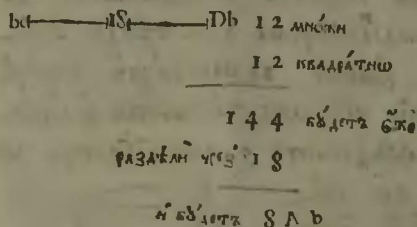 bc IS Db 1 2 мно́жи
1 2 квадра́тнѡ
1 4 4 бꙋ́детъ
раздѣлѝ чрез̾ 1 8
и҆ бꙋ́детъ 8 A b